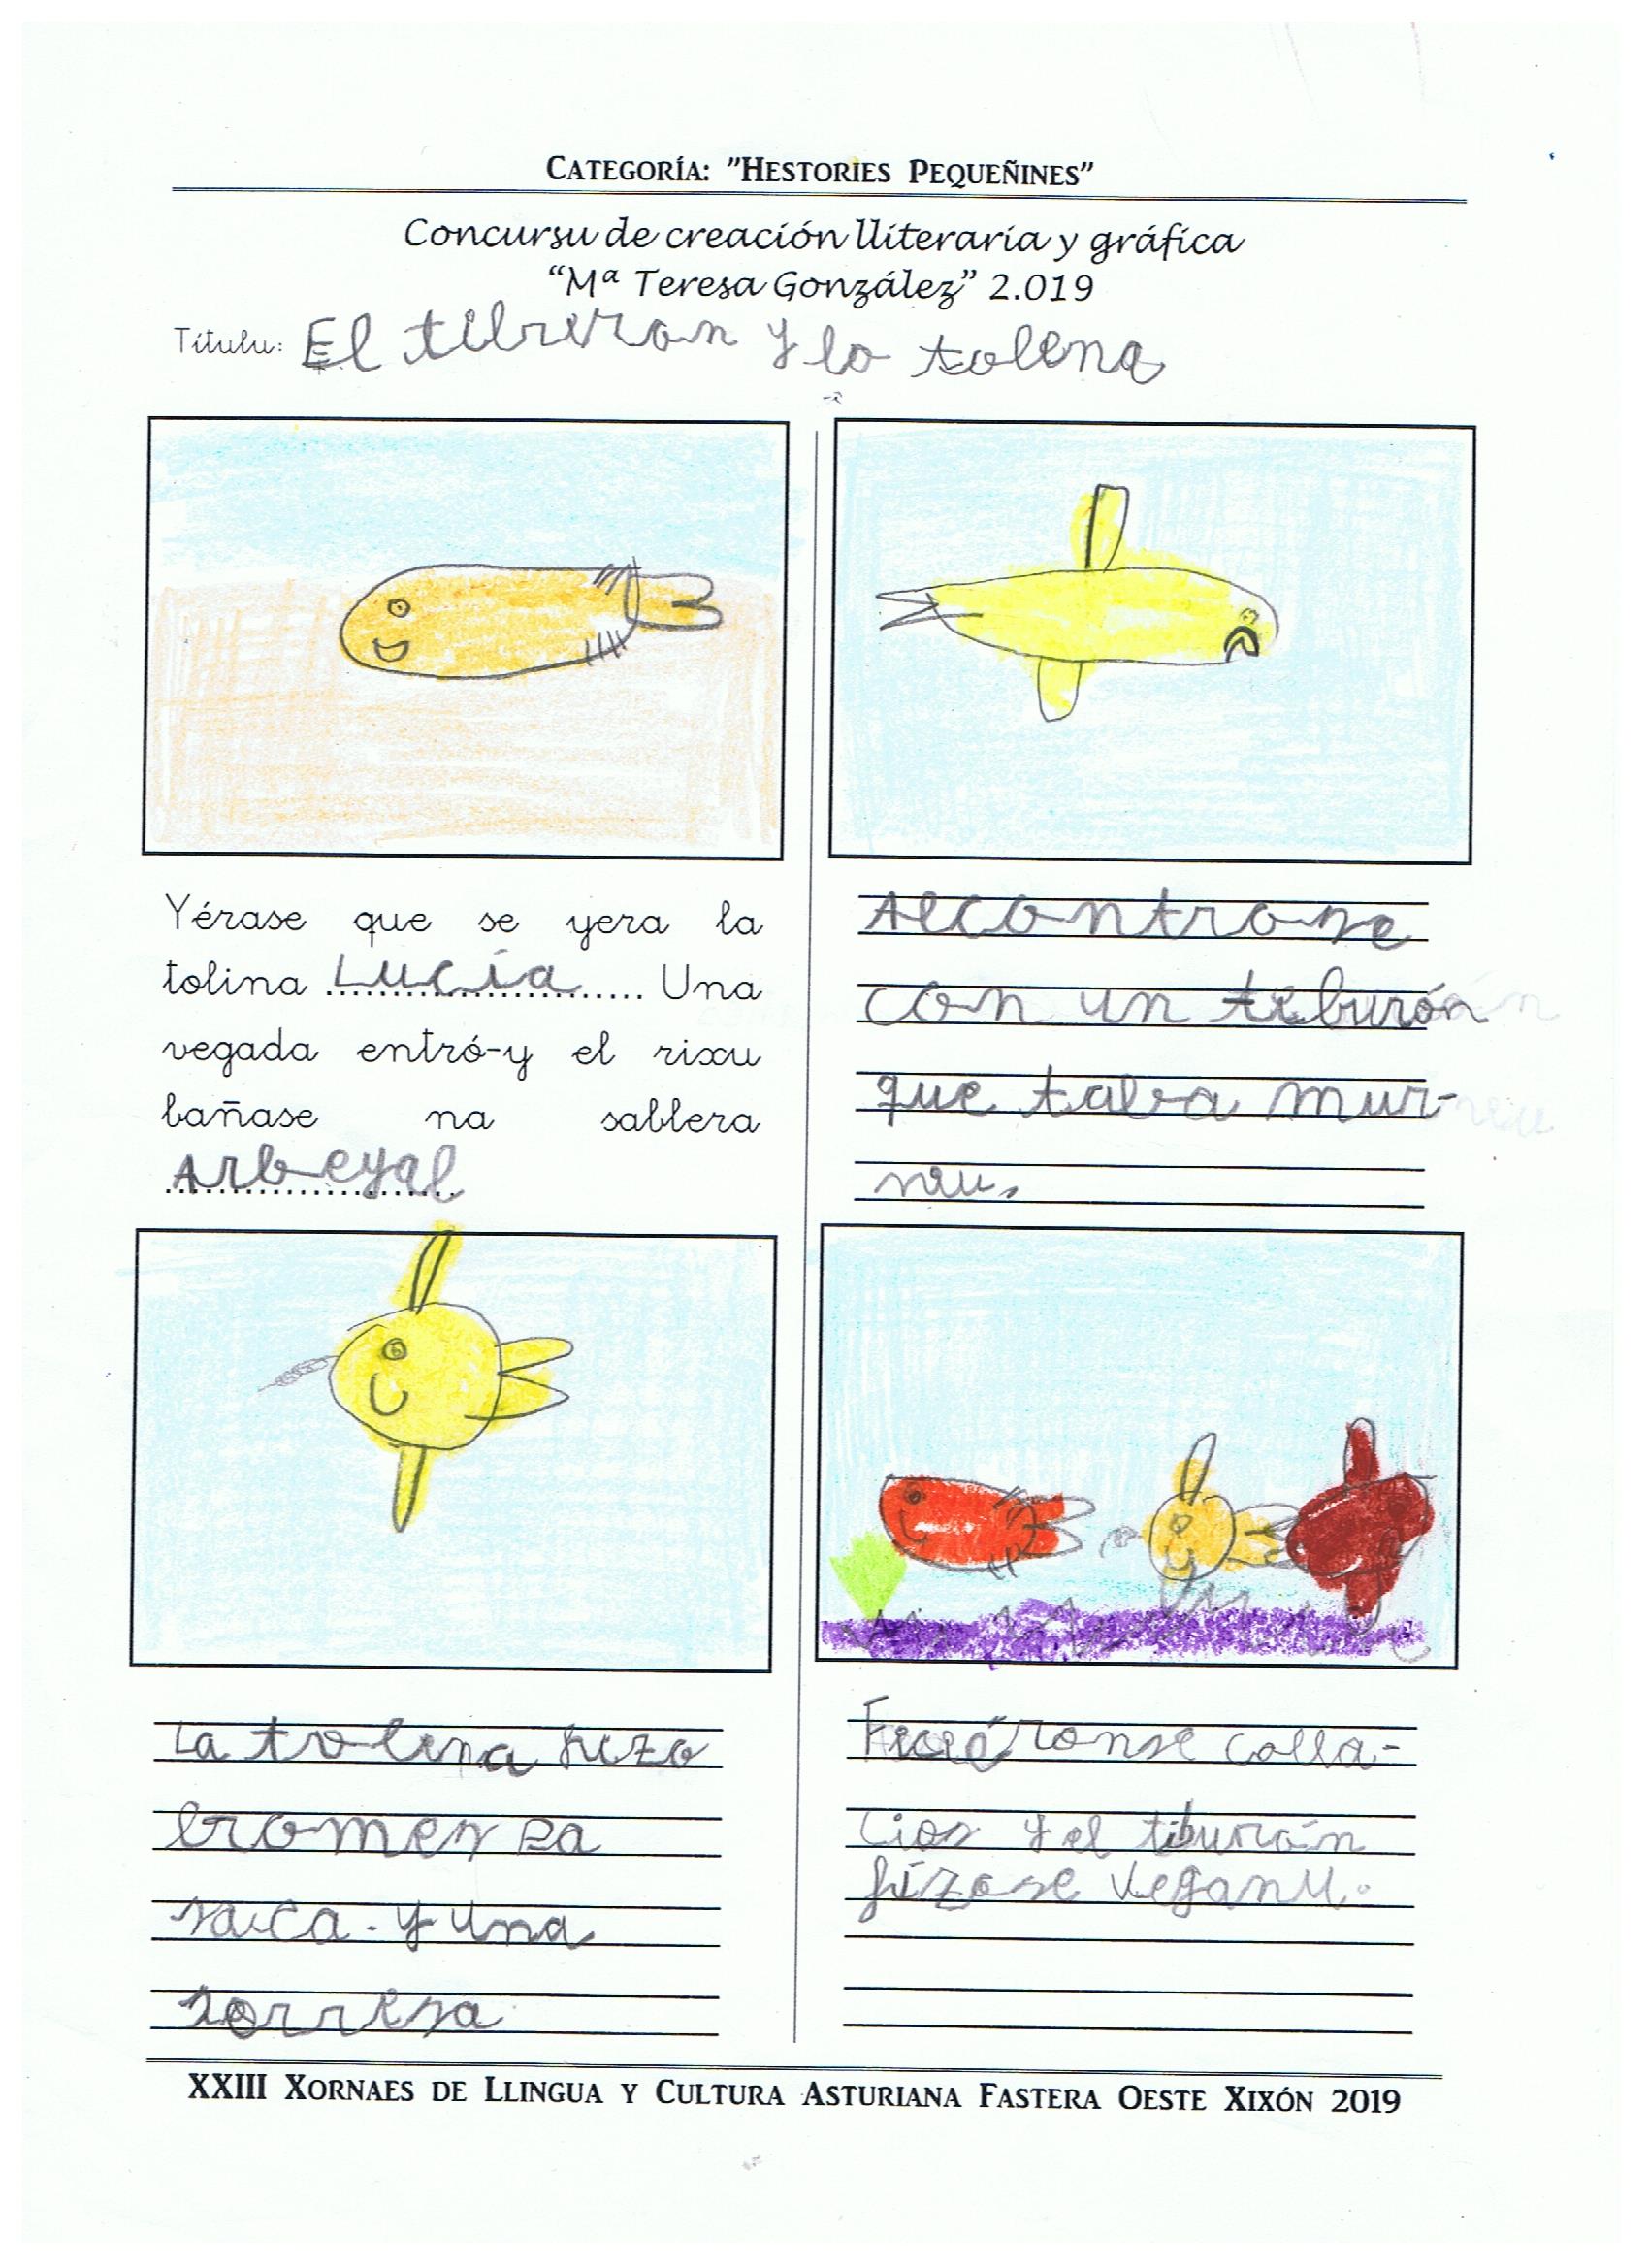 CATEGORÍA: "HESTORIES PEQUEÑINES"
Concursu de creación lliteraria y gráfica
"Mª Teresa González" 2.019
Títulu: El tibriron y lo tolina
Yérase que se yera la
tolina Lucía Una
vegada entró-y el rixu
bañase na sablera
Arbeyal
Alcontrose
con un tiburón
que taba mur-
niu.
La tolina fizo
bromes
y una
sorrisa
Ficiéronse colla-
cios y el tiburón
fízose veganu.
XXIII XORNAES DE LLINGUA Y CULTURA ASTURIANA FASTERA OESTE XIXÓN 2019